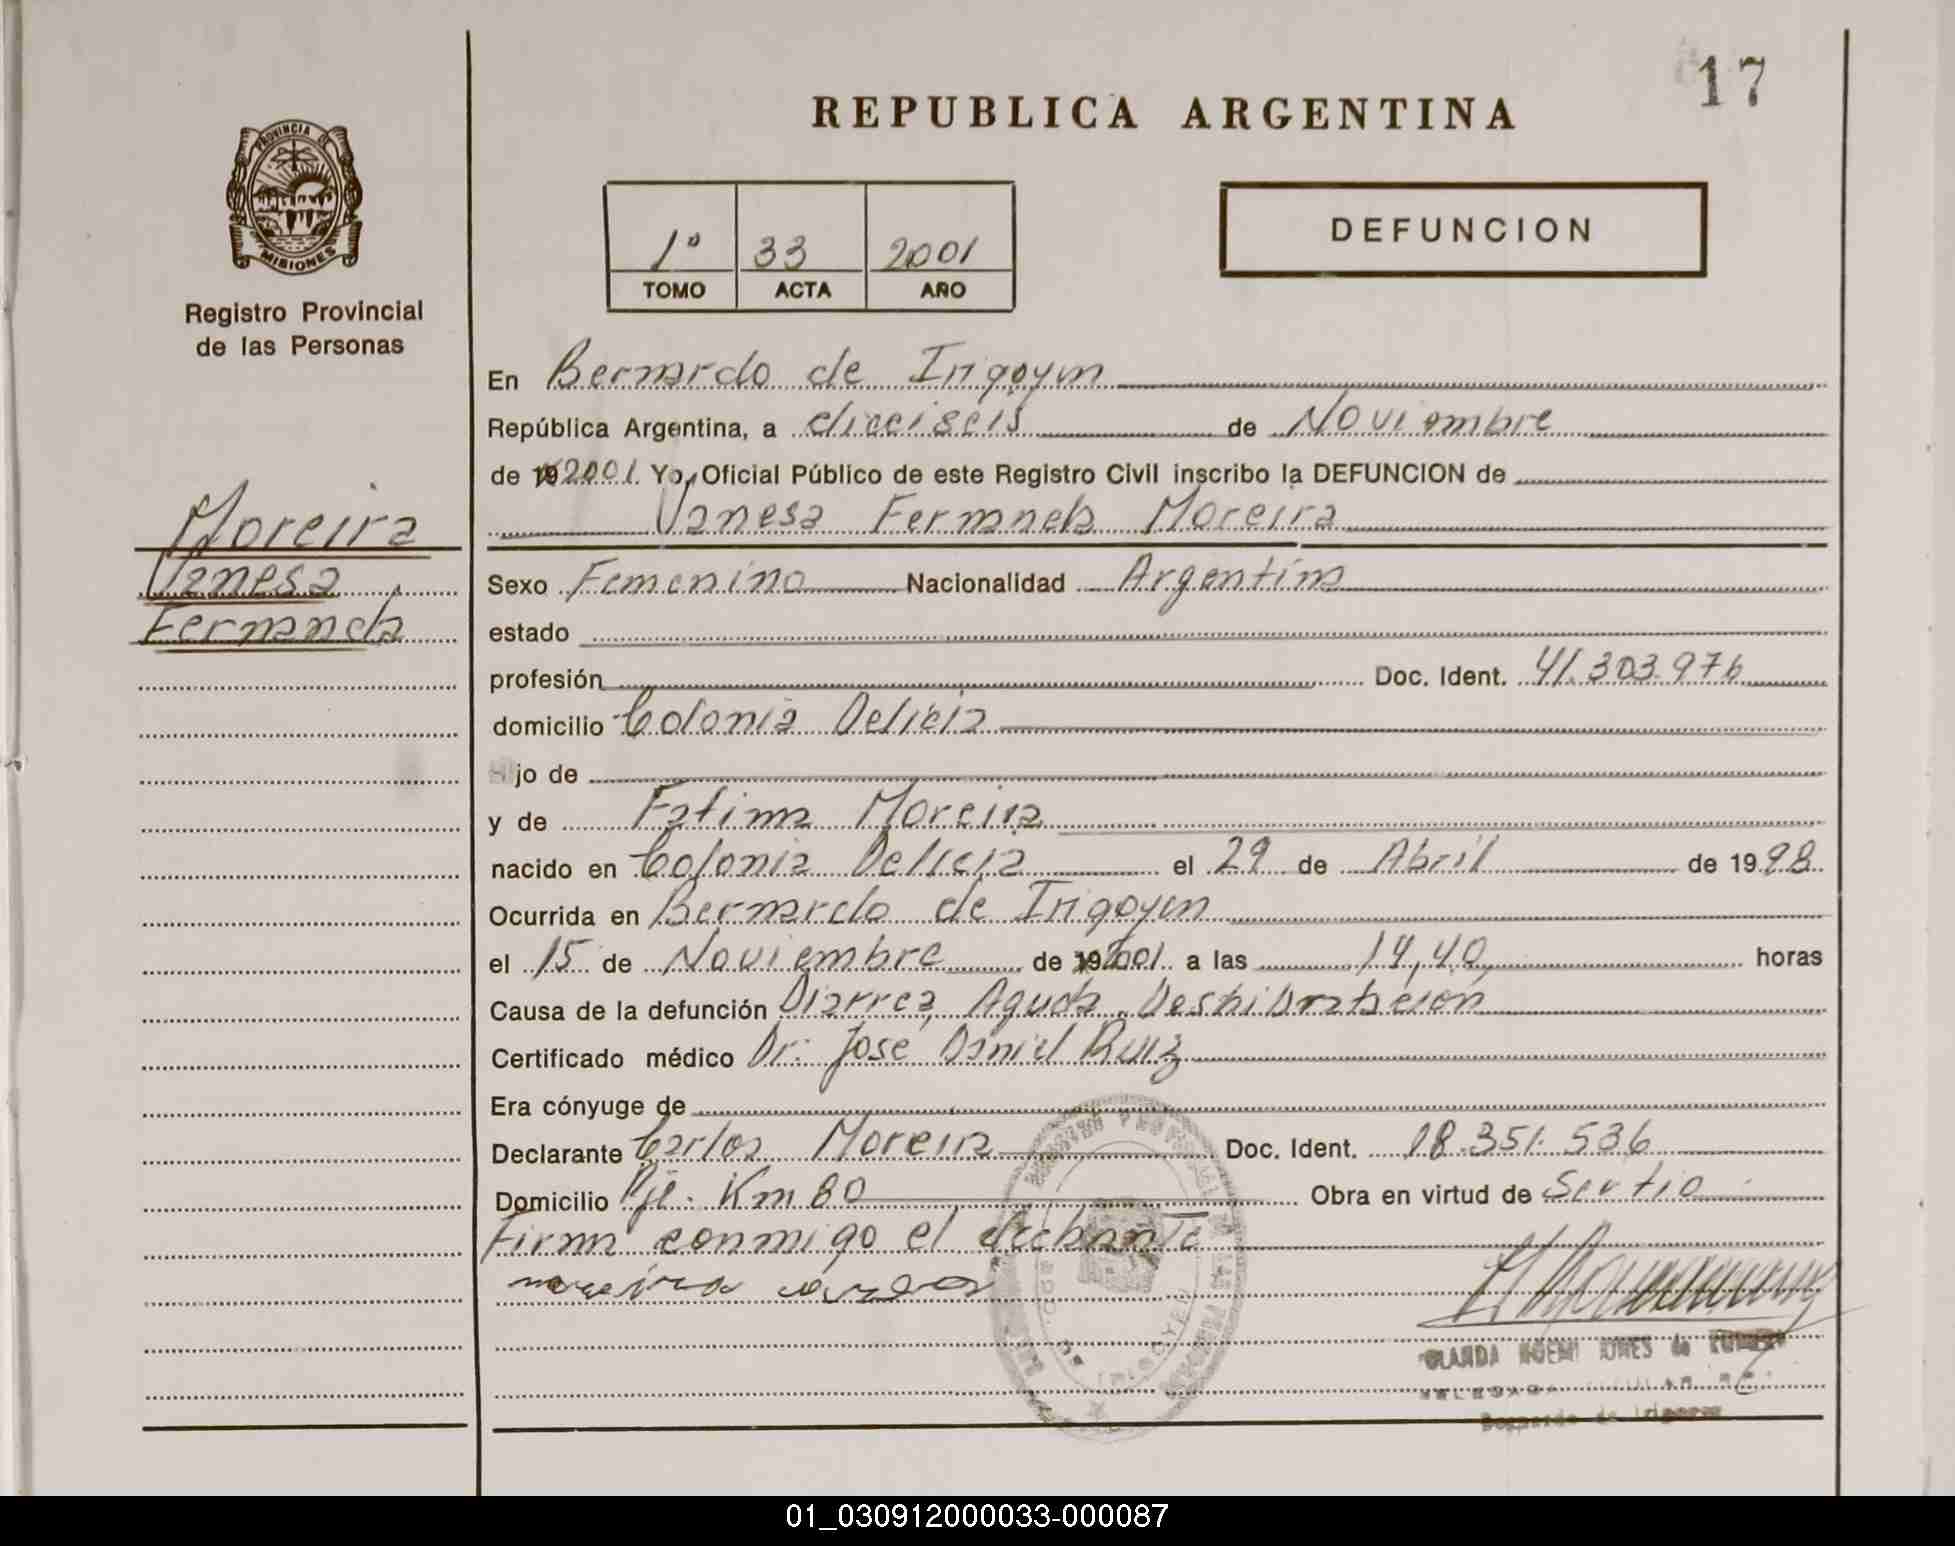 17
REPUBLICA ARGENTINA
PROVINCIA DE
MISIONES
Registro Provincial
de las Personas
1º 33 2001
TOMO ACTA AÑO
DEFUNCION
Moreira
Vanesa
Fernanda
En Bernardo de Irigoyen
República Argentina, a dieciseis de Noviembre
de 19 2001. Yo, Oficial Público de este Registro Civil inscribo la DEFUNCION de
Vanesa Fernanda Moreira
Sexo Femenino Nacionalidad Argentina
estado
profesión Doc. Ident. 41.303.976
domicilio Colonia Delicia
Hijo de
y de Fatima Moreira
nacido en Colonia Delicia el 29 de Abril de 1998
Ocurrida en Bernardo de Irigoyen
el 15 de Noviembre de 19 2001 a las 14,40 horas
Causa de la defunción Diarrea Aguda Deshidratación
Certificado médico Dr. José Daniel Ruiz
Era cónyuge de
Declarante Carlos Moreira Doc. Ident. 18.351.536
Domicilio Pje. Km 80 Obra en virtud de
Firma conmigo el declarante
moreira carlos
NOEMI de
Bernardo de Irigoyen
01_030912000033-000087